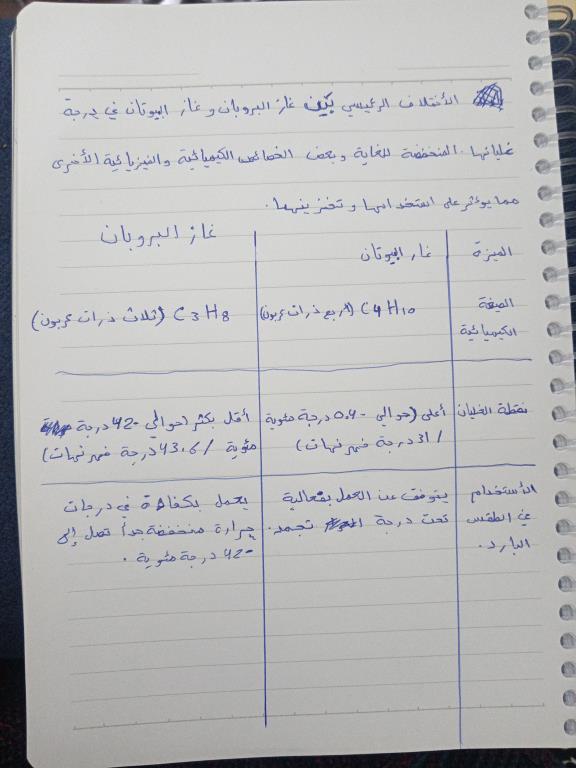 الأختلاف الرئيسي بين غاز البروبان و غاز البيوتان في درجة
غليانها المنخفضة للغاية وبعض الخصائص الكيميائية والفيزيائية الأخرى
مما يؤثر على استخدامها وتخزينهما.
الميزة
غاز البيوتان
غاز البروبان
الصيغة الكيميائية
C4H10 (اربع ذرات كربون)
C3H8 (ثلاث ذرات كربون)
نقطة الغليان
أعلى (حوالي -0.4 درجة مئوية
/ 31 درجة فهرنهات)
أقل بكثر (حوالي -42 درجة
مئوية / 43.6 درجة فهرنهات)
الأستخدام
في الطقس
البارد.
يتوقف عن العمل بفعالية
تحت درجة تجمد.
يعمل بكفاءة في درجات
حرارة منخفضة جداً تصل إلى
-42 درجة مئوية.